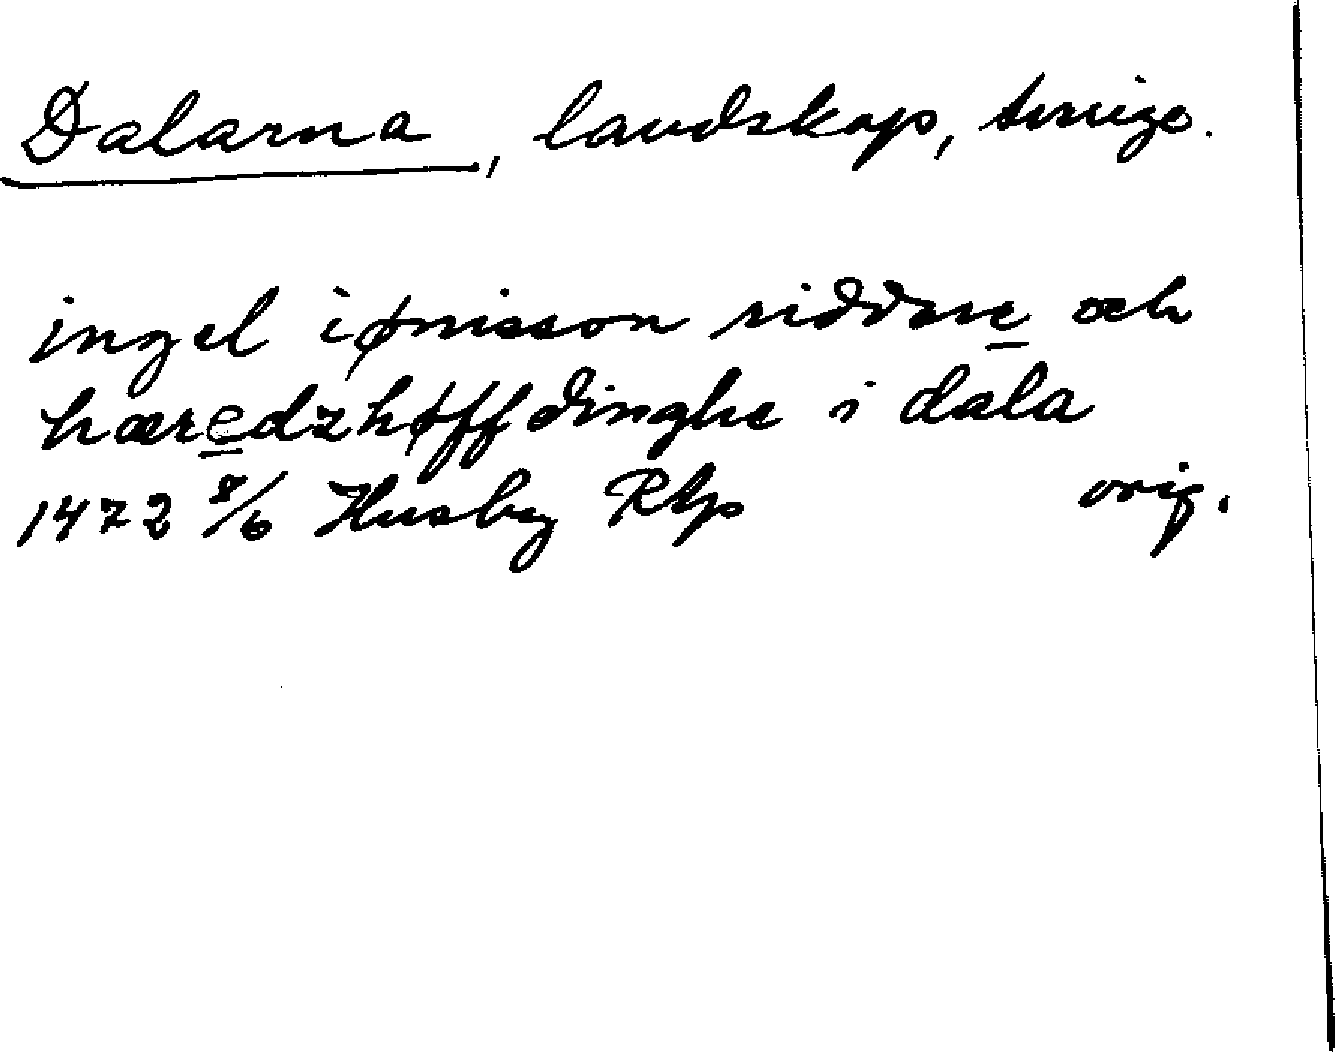 Dalarna, landskap, Sverige.
ingel iønisson riddare och
hæredzhøffdinghe i dala
1472 8/6 Husby Rbp orig.